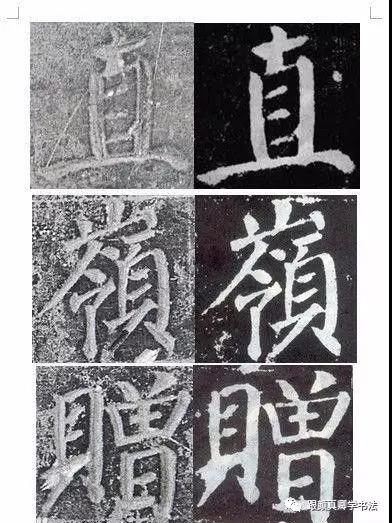 直 直
嶺 嶺
贈 贈
跟颜真卿学书法